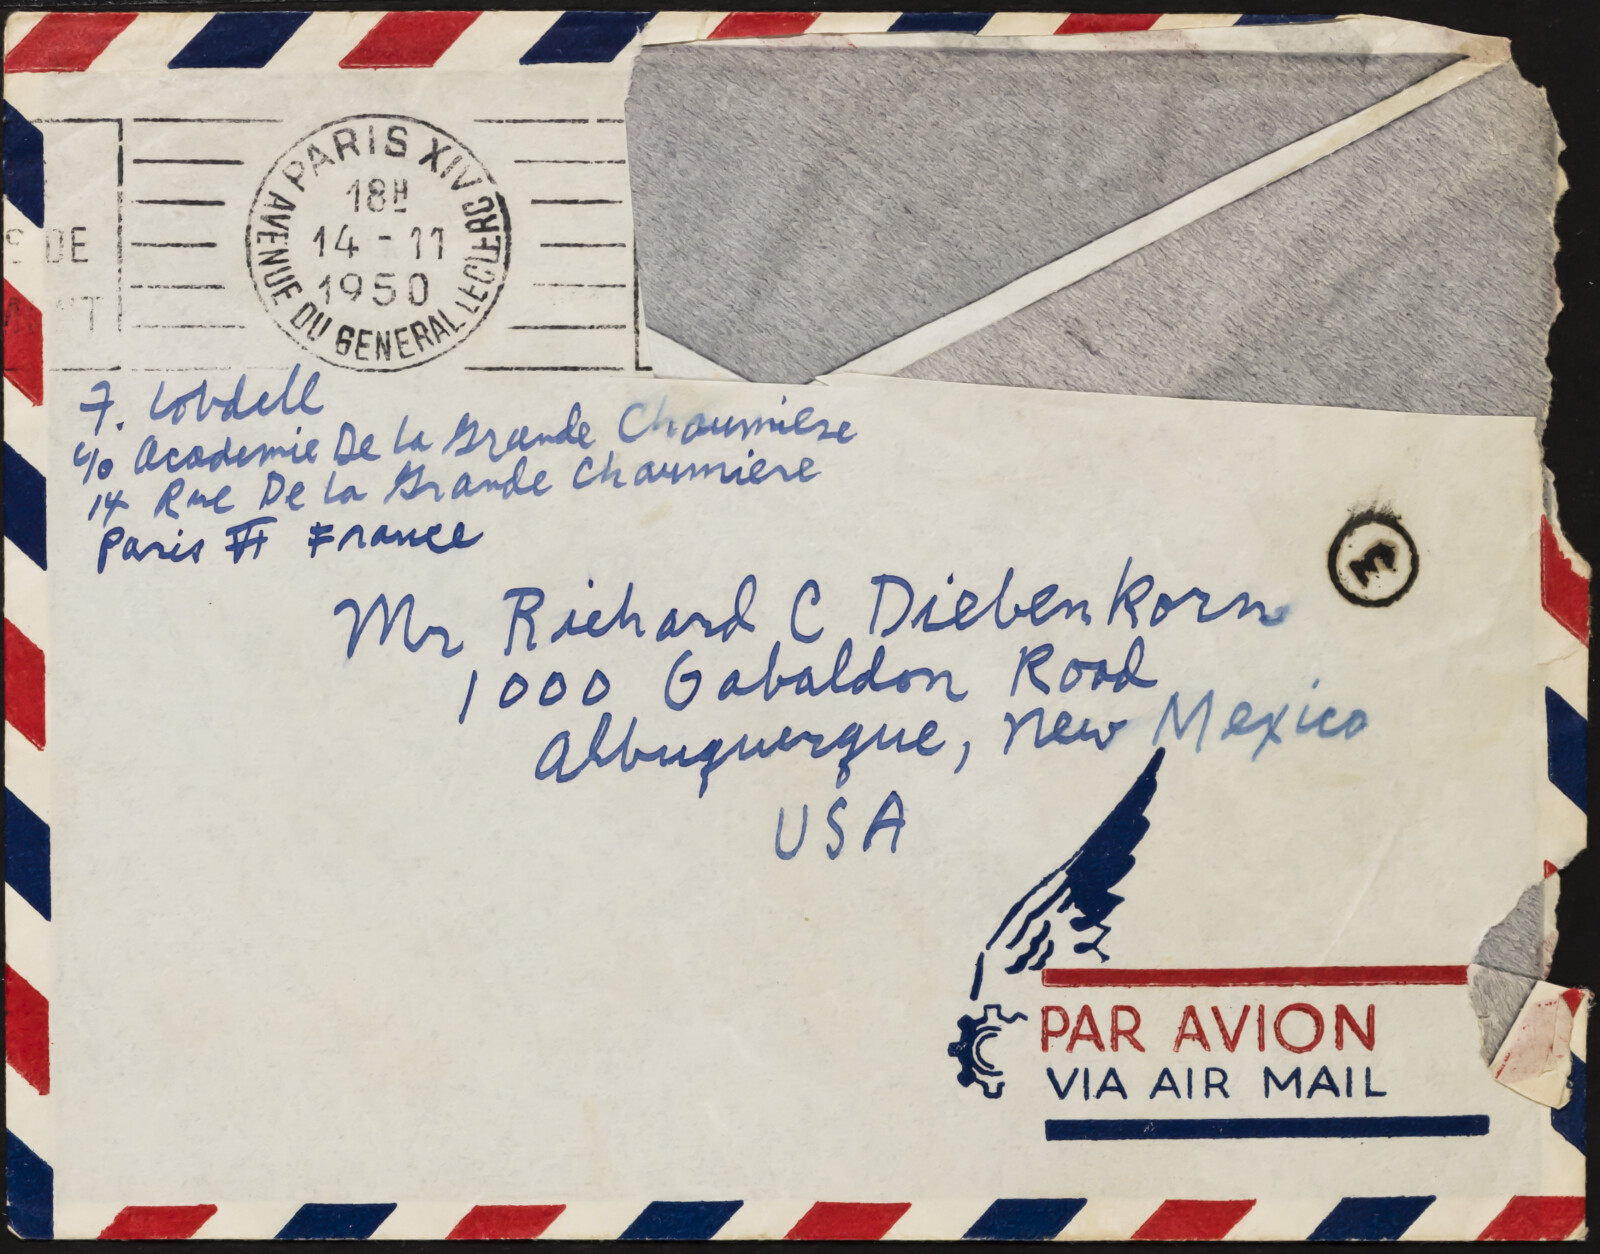 PARIS XIV
AVENUE DU GENERAL LECLERC
18H
14 - 11
1950
DE
F. Lobdell
c/o Academie De La Grande Chaumiere
14 Rue De La Grande Chaumiere
Paris VI France
Mr Richard C Diebenkorn
1000 Gabaldon Road
Albuquerque, New Mexico
USA
PAR AVION
VIA AIR MAIL